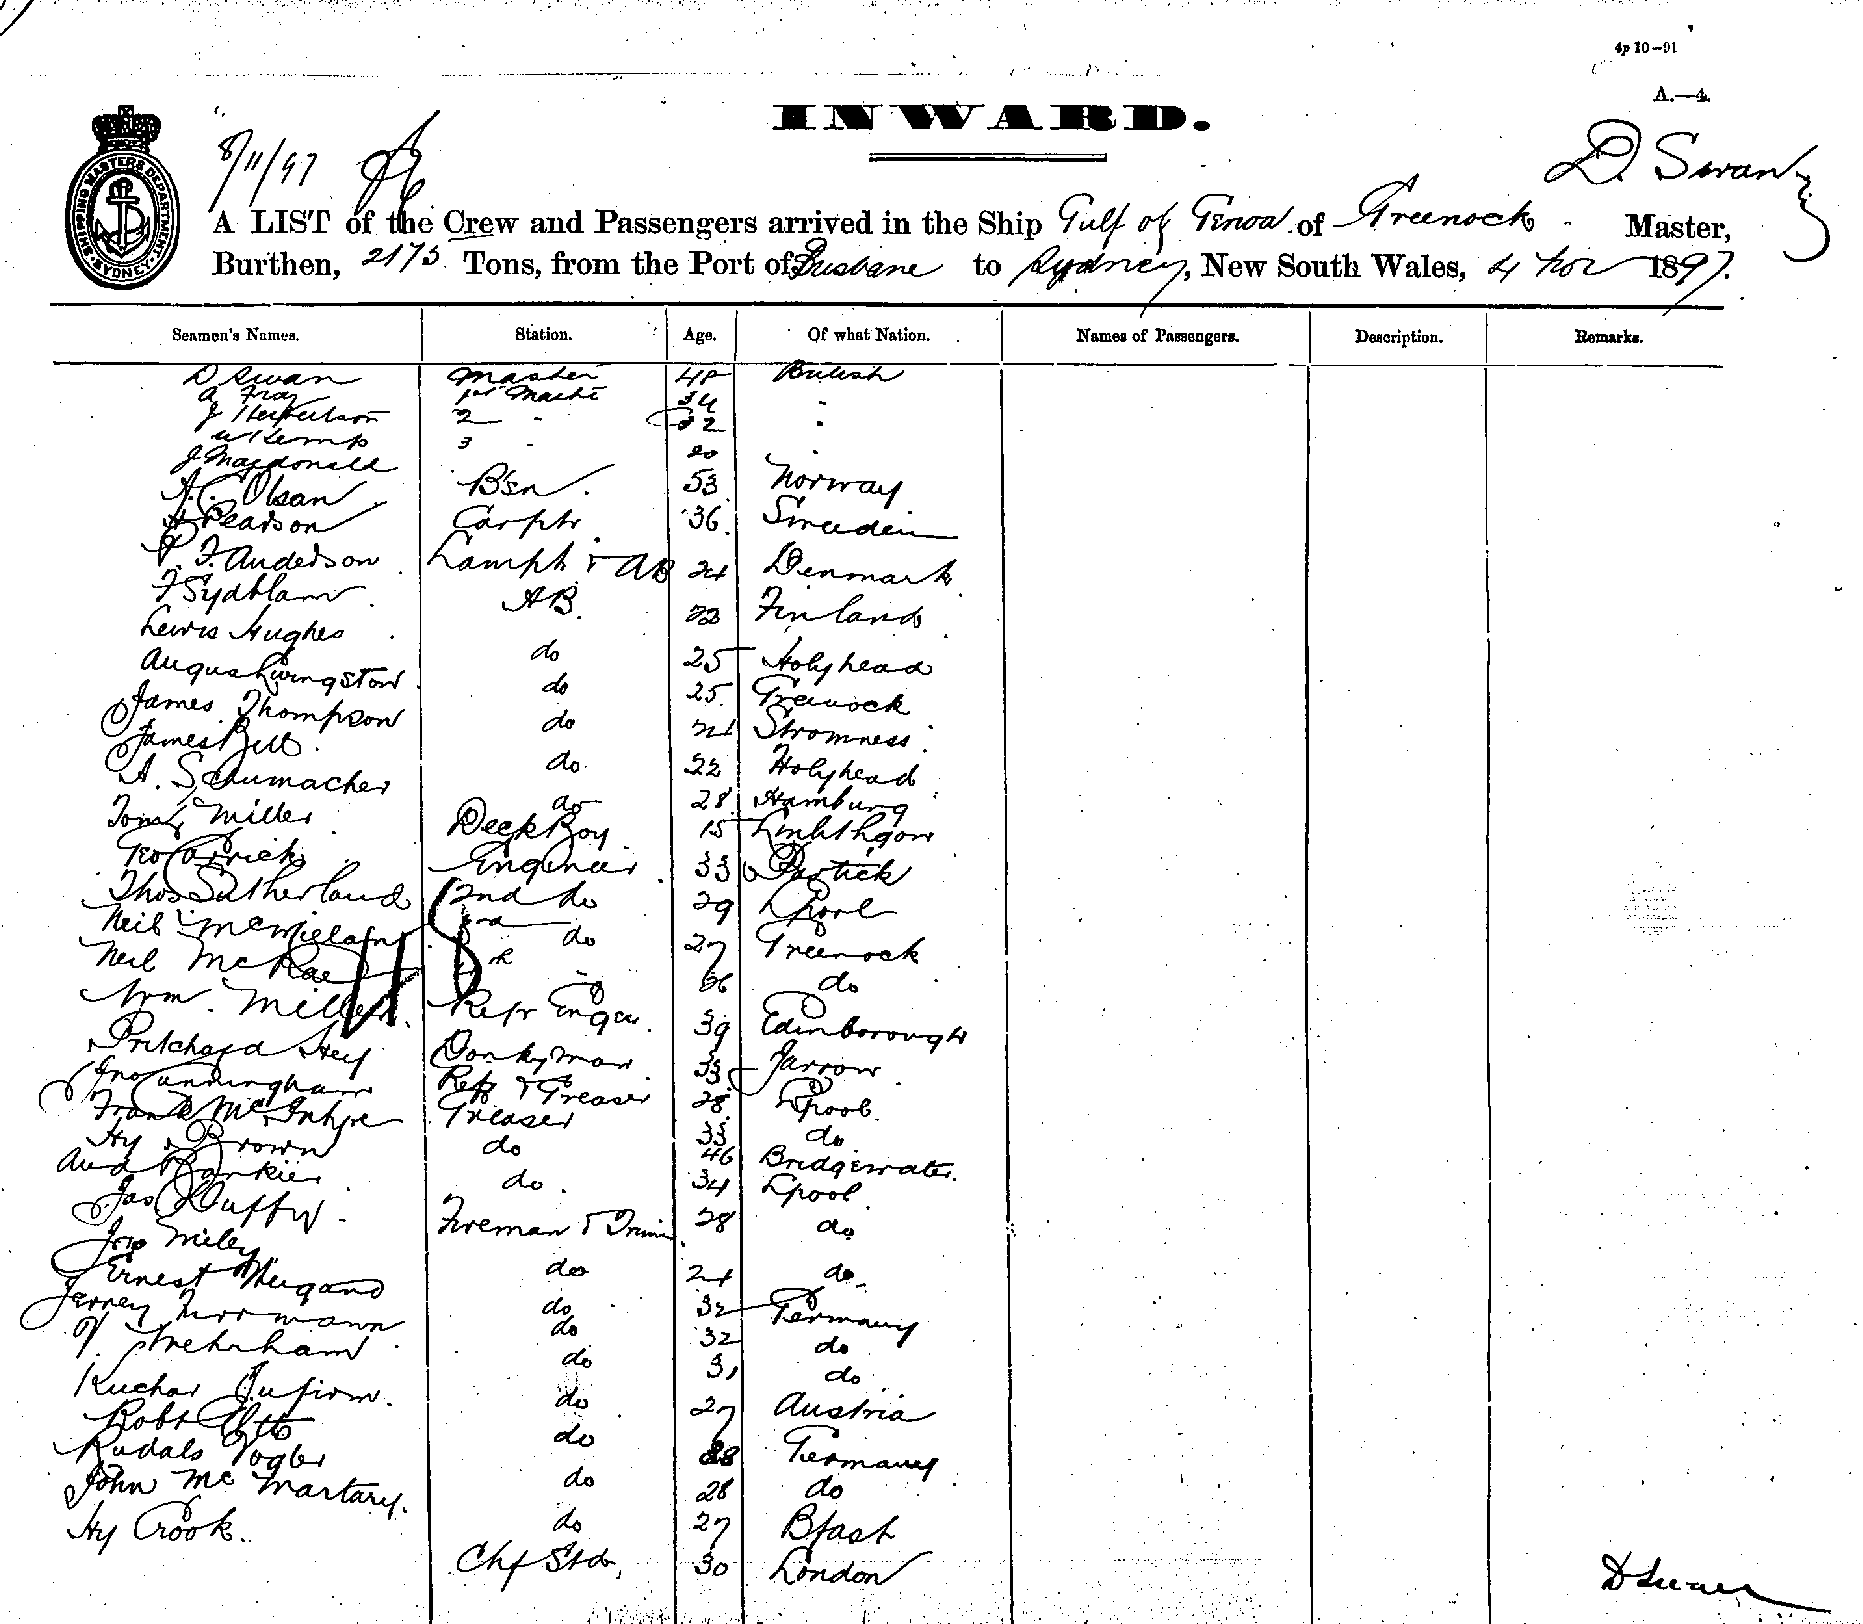 4p 10-91
A.—4.
INWARD.
8/11/97
D. Swan
SHIPPING MASTERS DEPARTMENT SYDNEY
A LIST of the Crew and Passengers arrived in the Ship Gulf of Genoa of Greenock Master,
Burthen, 2175 Tons, from the Port of Brisbane to Sydney, New South Wales, 4 Nov 1897.
Seamen's Names. Station. Age. Of what Nation. Names of Passengers. Description. Remarks.
D Swan Master British
1st Mate 34
2 32
W Kemp 3 20
J Macdonald
A. C. Olsan Bsn. 53 Norway
Pearson Carptr. 36 Sweeden
P. F. Anderson Lampt & AB 24 Denmark
F Sydblam AB. 23 Finland
Lewis Hughes do 25 Holyhead
Angus Livingston do 25 Greenock
James Thompson do 21 Stromness
James Bell do 22 Holyhead
A. Schumacher do 28 Hamburg
Miller Deck Boy 15 Linlithgow
Geo Carrick Engineer 33 Partick
Thos Sutherland 2nd do 29 Lpool
Neil 3rd do 27 Greenock
Neil McRae do
Wm. Miller Refr Enger. 39 Edinborough
Pritchard Hey Donkyman 33 Jarrow
Jno Cunningham Refr & Greaser 28 Lpool
Frank McIntyre Greaser 33 do
Hy Brown do 46 Bridgewater.
And Rankin do. 34 Lpool
Jas Duffy. Fireman & Trim 28 do
Jos Miley do 24 do
Ernest do 32 Germany
do 32 do
do 31 do
Kuchar do 27 Austria
Robt Otto do 28 Germany
Vogler do 28 do
John Mc do 27 Bfast
Hy Crook. Chf Std. 30 London
D Swan